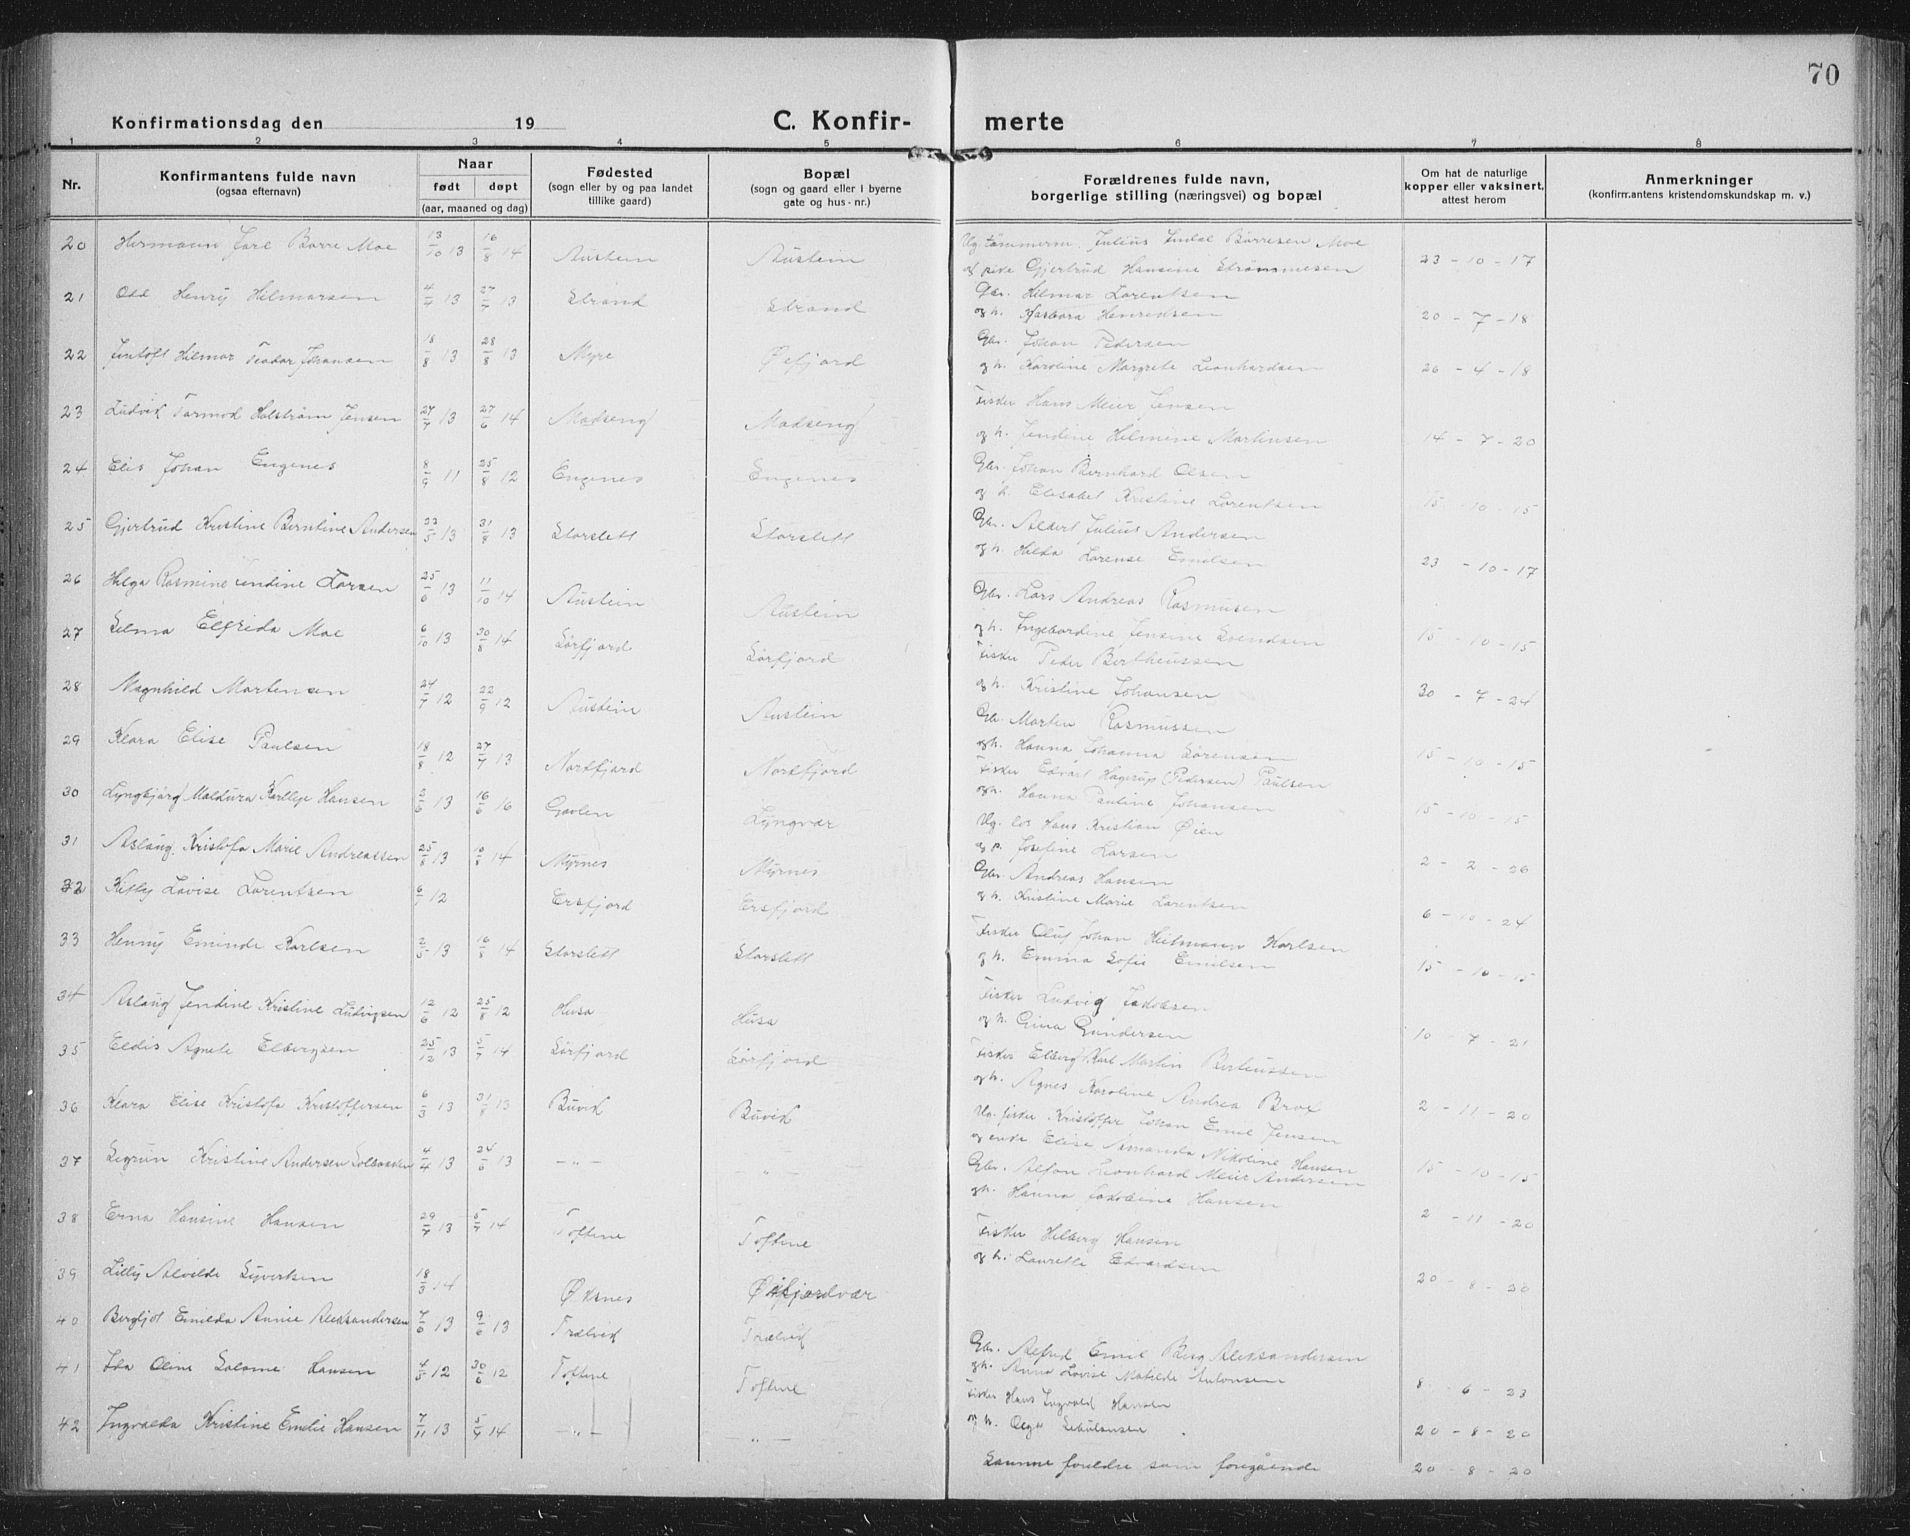 70
Konfirmationsdag den 19
C. Konfir-
merte
1 2 3 4 5 6 7 8
Nr.
Konfirmantens fulde navn
(ogsaa efternavn)
Naar
født døpt
(aar, maaned og dag)
Fødested
(sogn eller by og paa landet
tillike gaard)
Bopæl
(sogn og gaard eller i byerne
gate og hus-nr.)
Forældrenes fulde navn,
borgerlige stilling (næringsvei) og bopæl
Om hat de naturlige
kopper eller vaksinert,
attest herom
Anmerkninger
(konfirmantens kristendomskundskap m. v.)
20 Hermann Jarl Børre Moe 13/10 13 16/8 14 Austein Austein Ug. tømmerm. Julius Børresen Moe
og pike Gjertrud Hansine Strømmesen 23-10-17
21 Odd Henry Hilmarsen 4/4 13 27/7 13 Strand Strand Gbr. Hilmar Lorentsen
og h. Barbara Henriksen 20-7-18
22 Hilmar Teodor Johansen 18/8 13 28/8 13 Myre Øifjord Gbr. Johan Pedersen
og h. Karoline Margrete Leonhardsen 26-4-18
23 Ludvik Tormod Holstrøm Jensen 27/7 13 27/6 14 Madseng Madseng Fisker Hans Meier Jensen
og h. Jendine Helmine Martinsen 14-7-20
24 Elis Johan Engenes 8/9 11 25/8 12 Engenes Engenes Gbr. Johan Bernhard Olsen
og h. Elisabet Kristine Lorentsen 15-10-15
25 Gjertrud Kristine Berntine Andersen 23/5 13 31/8 13 Storslett Storslett Gbr. Albert Julius Andersen
og h. Hilda Lorense Emilsen 23-10-17
26 Helga Rasmine Jendine Larsen 25/6 13 11/10 14 Austein Austein Gbr. Lars Andreas Rasmusen
og h. Ingebordine Jensine Svendsen 15-10-15
27 Selma Elfrida Moe 6/10 13 30/8 14 Sørfjord Sørfjord Fisker Peder Bertheussen
og h. Kristine Johansen 30-7-24
28 Magnhild Mortensen 24/7 12 22/9 12 Austein Austein Gbr. Morten Rasmussen
og h. Hanna Johanna Sørensen 15-10-15
29 Klara Elise Paulsen 18/8 12 27/7 13 Nordfjord Nordfjord Fisker Edvart Hagerup (Pedersen) Paulsen
og h. Hanna Pauline Johansen 15-10-15
30 Lyngbjørg Maldura Hansen 2/6 13 16/6 16 Gavlen Lyngvær Ug. los Hans Kristian Øien
og p. Josefine Larsen 2-2-26
31 Aslaug Kristofa Marie Andreassen 25/8 13 10/8 14 Myrnes Myrnes Gbr. Andreas Hansen
og h. Kristine Marie Lorentsen 6-10-24
32 Kitty Lovise Lorentsen 6/7 12 Ersfjord Ersfjord
33 Henny Eminde Karlsen 2/5 13 16/8 14 Storslett Storslett Fisker Oluf Johan Heitmann Karlsen
og h. Emma Sofie Emilsen 15-10-15
34 Aslaug Jendine Kristine Ludvigsen 12/6 12 25/8 12 Husa Husa Fisker Ludvig Jakobsen
og h. Gina Gundersen 10-7-21
35 Eldis Agnete Elbergsen 25/12 13 5/7 14 Sørfjord Sørfjord Fisker Elberg Karl Martin Berteussen
og h. Agnes Karoline Andrea Brox 2-11-20
36 Klara Elise Kristofa Kristoffersen 6/3 13 31/8 13 Buvik Buvik Ug. fisker Kristoffer Johan Emil Jensen
og enke Elise Amanda Nikoline Hansen 15-10-15
37 Sigrun Kristine Andersen Solbakken 4/4 13 24/6 13 -"- -"- Gbr. Alfon Leonhard Meier Andersen
og h. Hanna Jakobine Hansen 2-11-20
38 Erna Hansine Hansen 29/7 13 5/7 14 Toftene Toftene Fisker Hilberg Hansen
og h. Laurette Edvardsen 20-8-20
39 Lilly Alvilde Syvertsen 18/3 14 Øksnes Øifjordvær
40 Bergljot Emilda Annie Aleksandersen 7/6 13 9/6 13 Trælvik Trælvik Gbr. Alfred Emil Berg Aleksandersen
og h. Anna Lovise Matilde Antonsen 8-6-23
41 Ida Oline Salome Hansen 4/5 12 30/6 12 Toftene Toftene Fisker Hans Ingvald Hansen
og h. Olga 20-8-20
42 Ingvalda Kristine Emelie Hansen 7/11 13 5/7 14 -"- -"- Samme foreldre som foregående 20-8-20